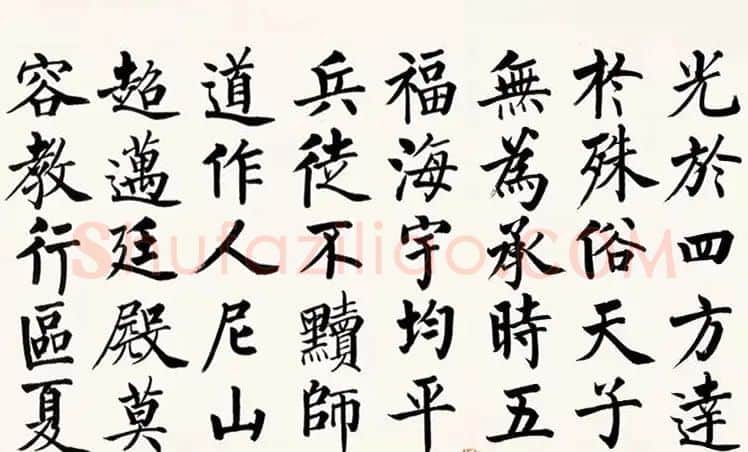 光於四方達
扵殊俗天子
無為承時五
福海宇均平
兵徒不黷師
道作人尼山
超邁廷殿莫
容教行區夏
Shufaziliao.COM